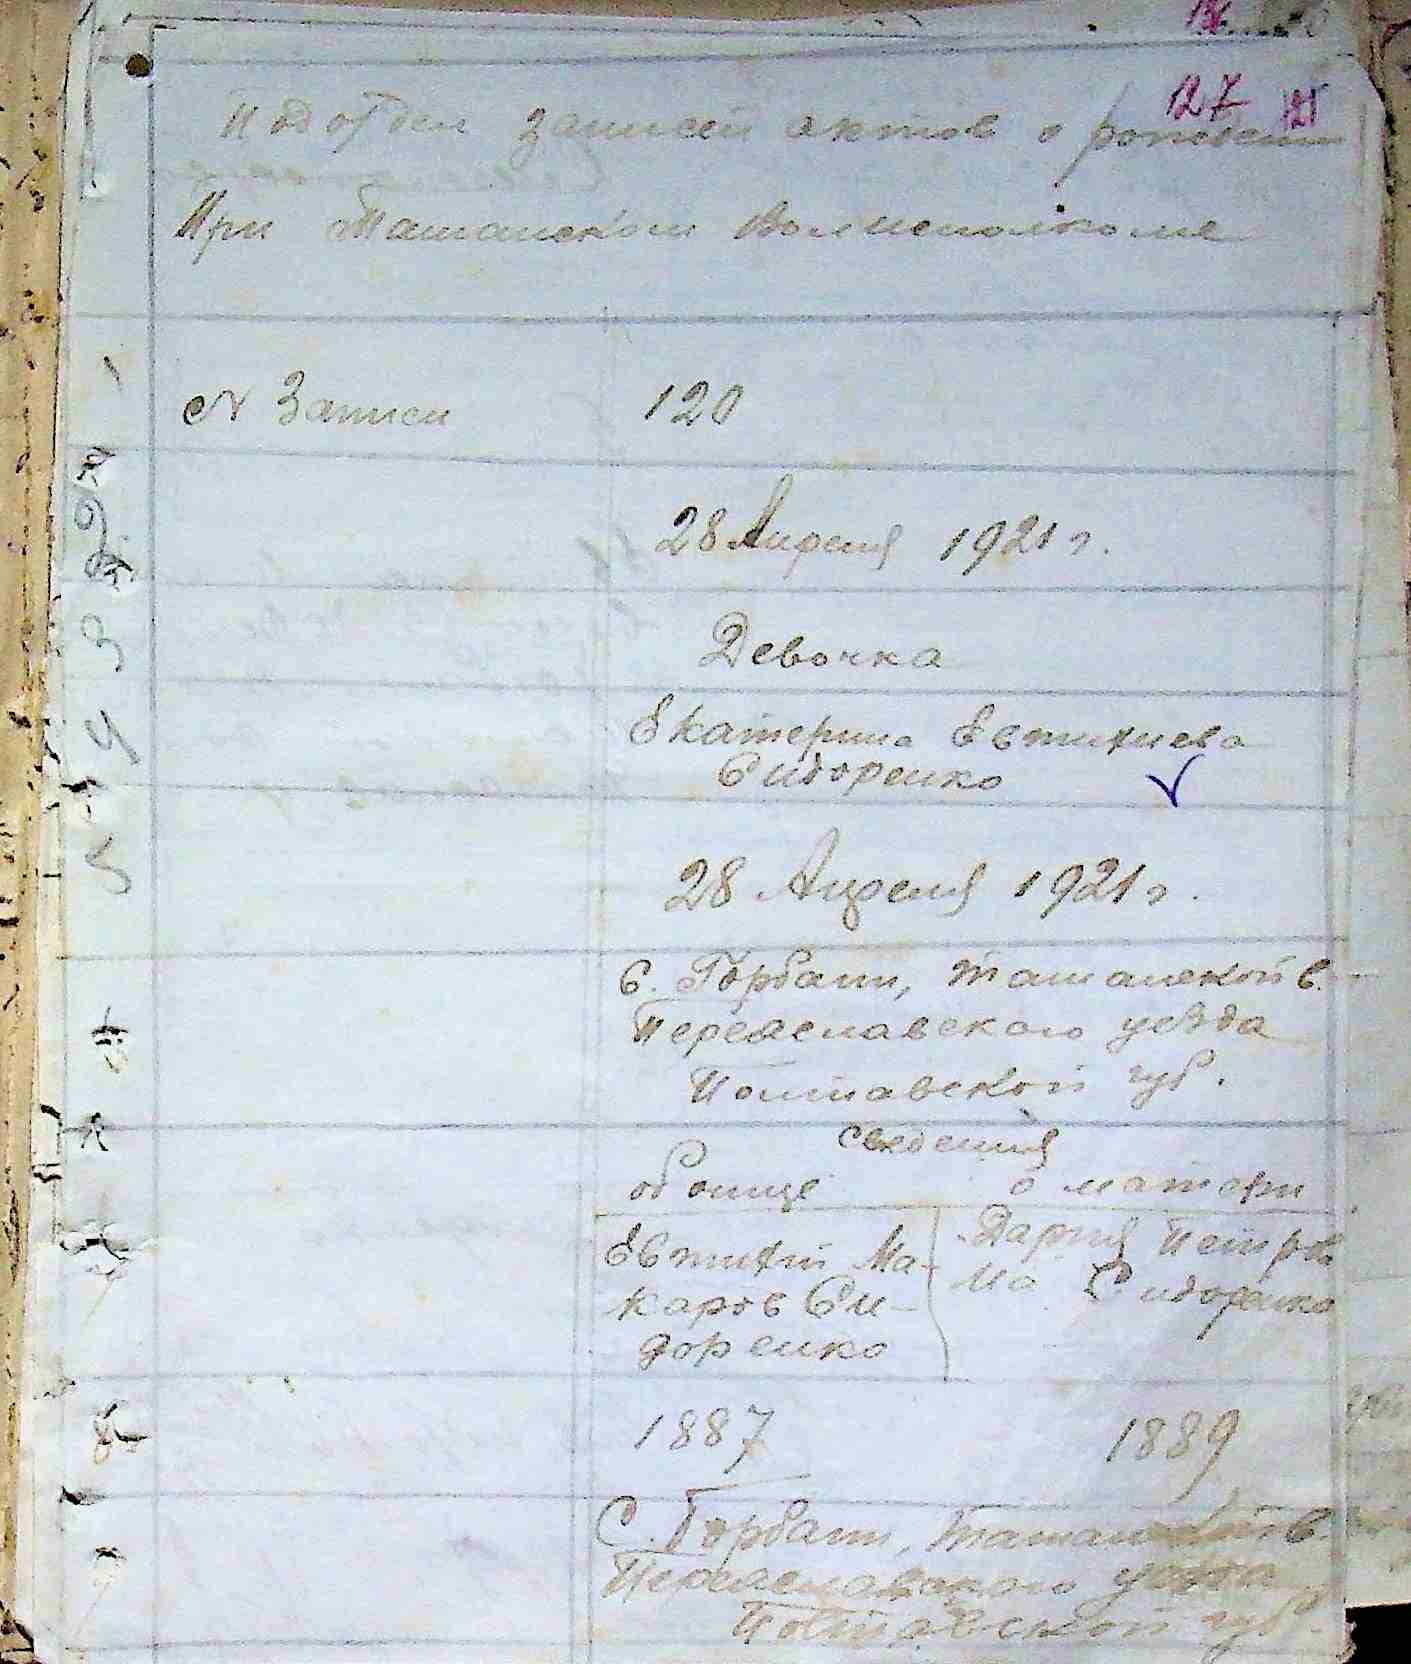 127 121
Подотдел записей актов о рождении
При Ташанском Волисполкоме
1 № Записи 120
2 28 Апреля 1921 г.
3 Девочка
4 Екатерина Евтихиева
Сидоренко
5 28 Апреля 1921 г.
6 С. Горбани, Ташанской в.
Переяславского уезда
Полтавской губ.
7 сведения
об отце о матери
Евтихий Ма- Дария Петров
каров Си- на Сидоренко
доренко
8 1887 1889
9 С. Горбани, Ташанской в.
Переяславского уезда
Полтавской губ.